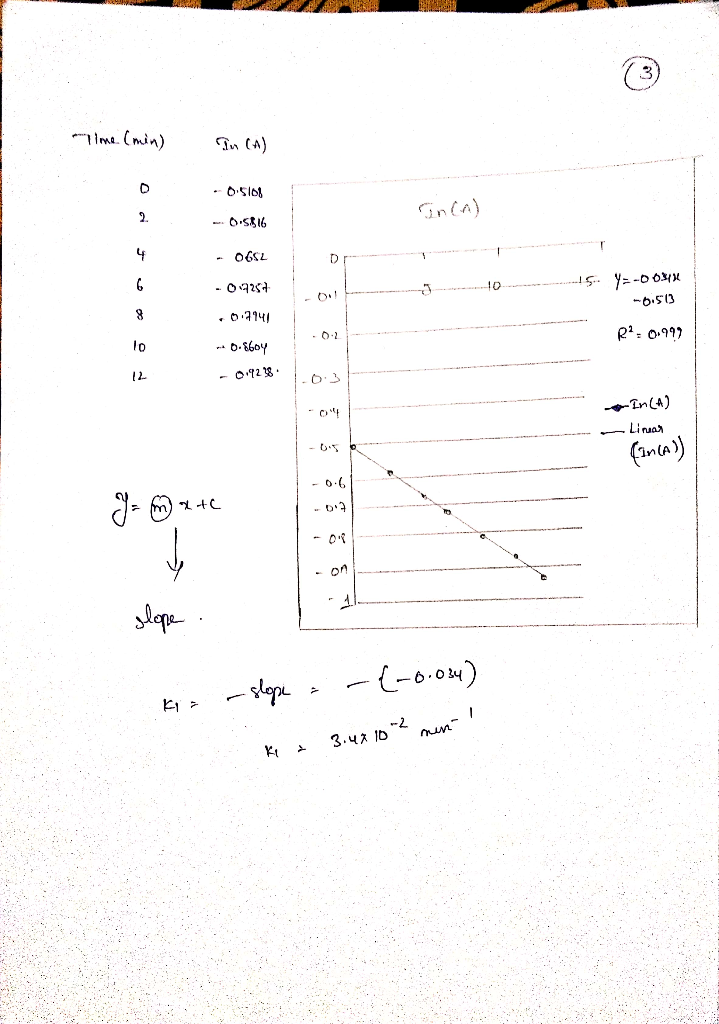 3
Time (min) In (A)
0 - 0.5108
2 - 0.5816
4 - 0652
6 - 0.7257
8 - 0.7941
10 - 0.8604
12 - 0.9238.
In(A)
0
- 0.1 5 10 15
- 0.2
- 0.3
- 0.4
- 0.5
- 0.6
- 0.7
- 0.8
- 0.9
- 1
y = -0.034x
-0.513
R² = 0.999
In(A)
Linear
(In(A))
y = m x + c
slope .
K1 = - slope = - (-0.034)
K1 = 3.4 x 10⁻² min⁻¹